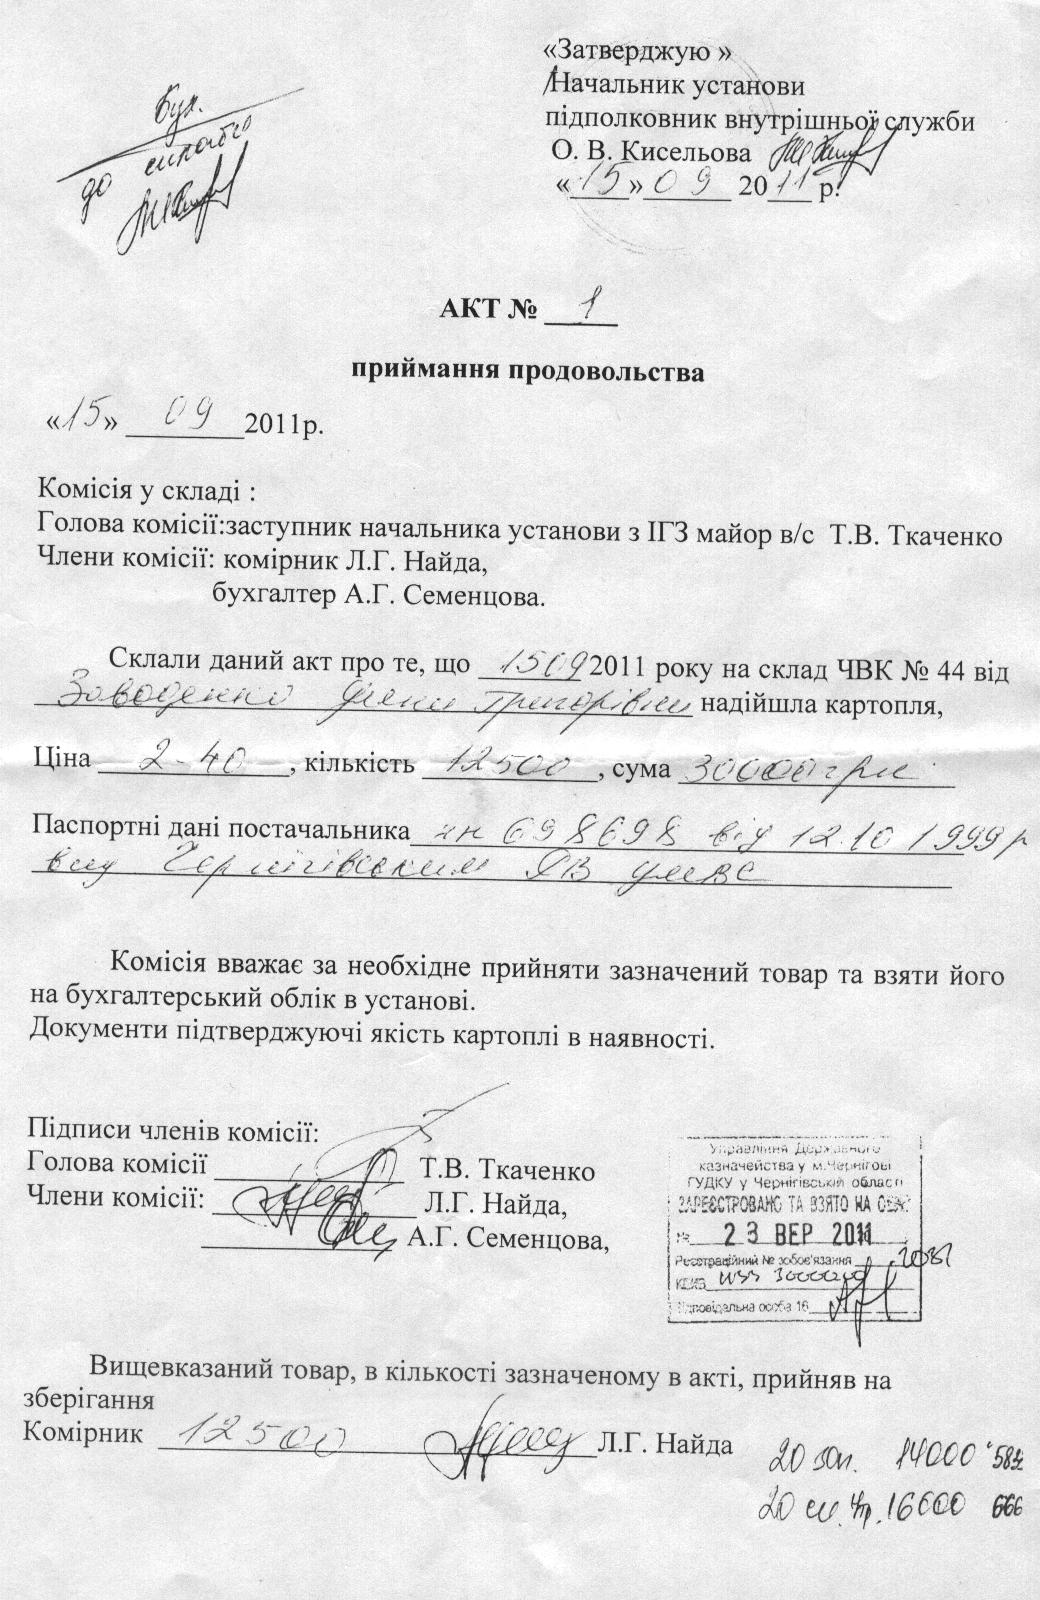 «Затверджую »
Начальник установи
підполковник внутрішньої служби
О. В. Кисельова
«15» 09 2011 р.
Бух.
до сплати
АКТ № 1
приймання продовольства
«15» 09 2011р.
Комісія у складі :
Голова комісії:заступник начальника установи з ІГЗ майор в/с Т.В. Ткаченко
Члени комісії: комірник Л.Г. Найда,
бухгалтер А.Г. Семенцова.
Склали даний акт про те, що 1509 2011 року на склад ЧВК № 44 від
Григорівни надійшла картопля,
Ціна 2-40, кількість 12500, сума 30000 грн
Паспортні дані постачальника 698698 від 12.10 1999 р
Чернігівським РВ УМВС
Комісія вважає за необхідне прийняти зазначений товар та взяти його
на бухгалтерський облік в установі.
Документи підтверджуючі якість картоплі в наявності.
Підписи членів комісії:
Голова комісії Т.В. Ткаченко
Члени комісії: Л.Г. Найда,
А.Г. Семенцова,
Управління Державного
казначейства у м.Чернігові
ГУДКУ у Чернігівській області
ЗАРЕЄСТРОВАНО ТА ВЗЯТО НА ОБЛІК
№ 23 ВЕР 2011
Реєстраційний № зобов'язання
КЕКВ
Відповідальна особа 16
Вищевказаний товар, в кількості зазначеному в акті, прийняв на
зберігання
Комірник 12500 Л.Г. Найда
20 14000
20 16000 666